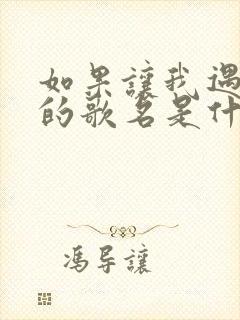 如果讓我遇
的歌名是什
馮导讓